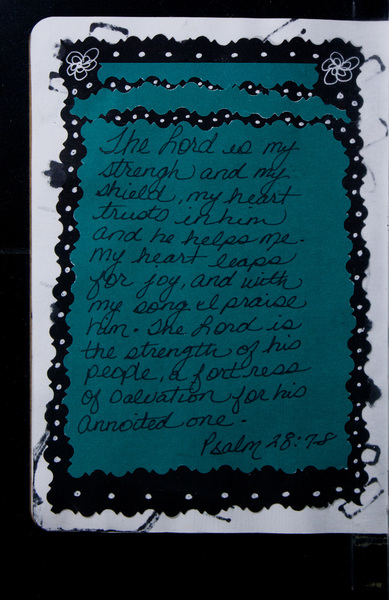 The Lord is my
strengh and my
shield, my heart
trusts in him
and he helps me.
my heart leaps
for joy, and with
my song I praise
him. The Lord is
the strength of his
people, a fortress
of Salvation for his
annoited one.
Psalm 28:7-8